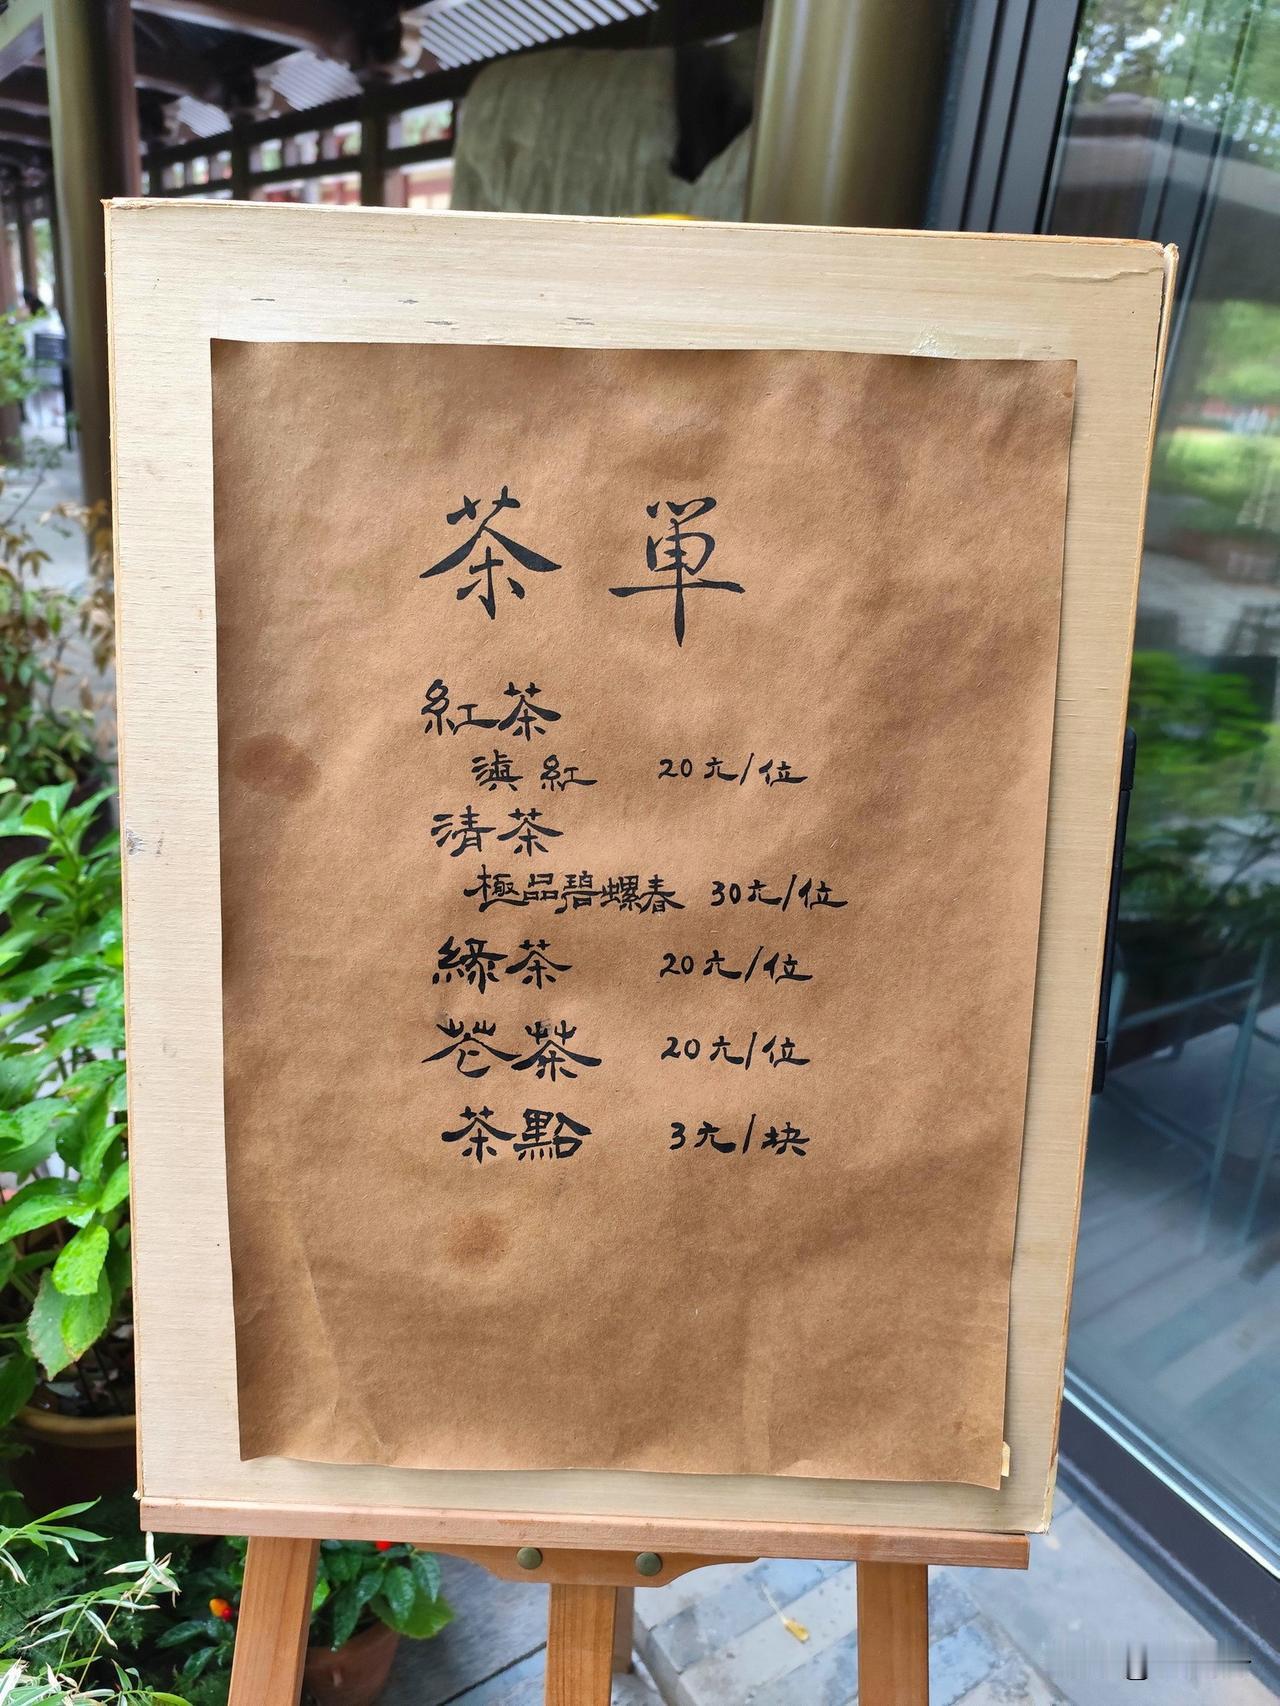 茶單
紅茶
滇紅 20元/位
清茶
極品碧螺春 30元/位
綠茶 20元/位
花茶 20元/位
茶點 3元/块